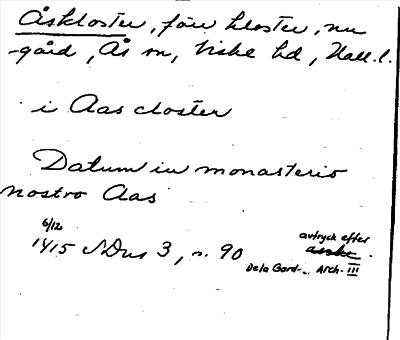 Åskloster, förr kloster, nu
-gård, Ås sn, Viske hd, Hall. l.
i Aas closter
Datum in monasterio
nostro Aas
6/12
1415 SDns 3, s. 90
avtryck efter
De la Gard... Arch. III